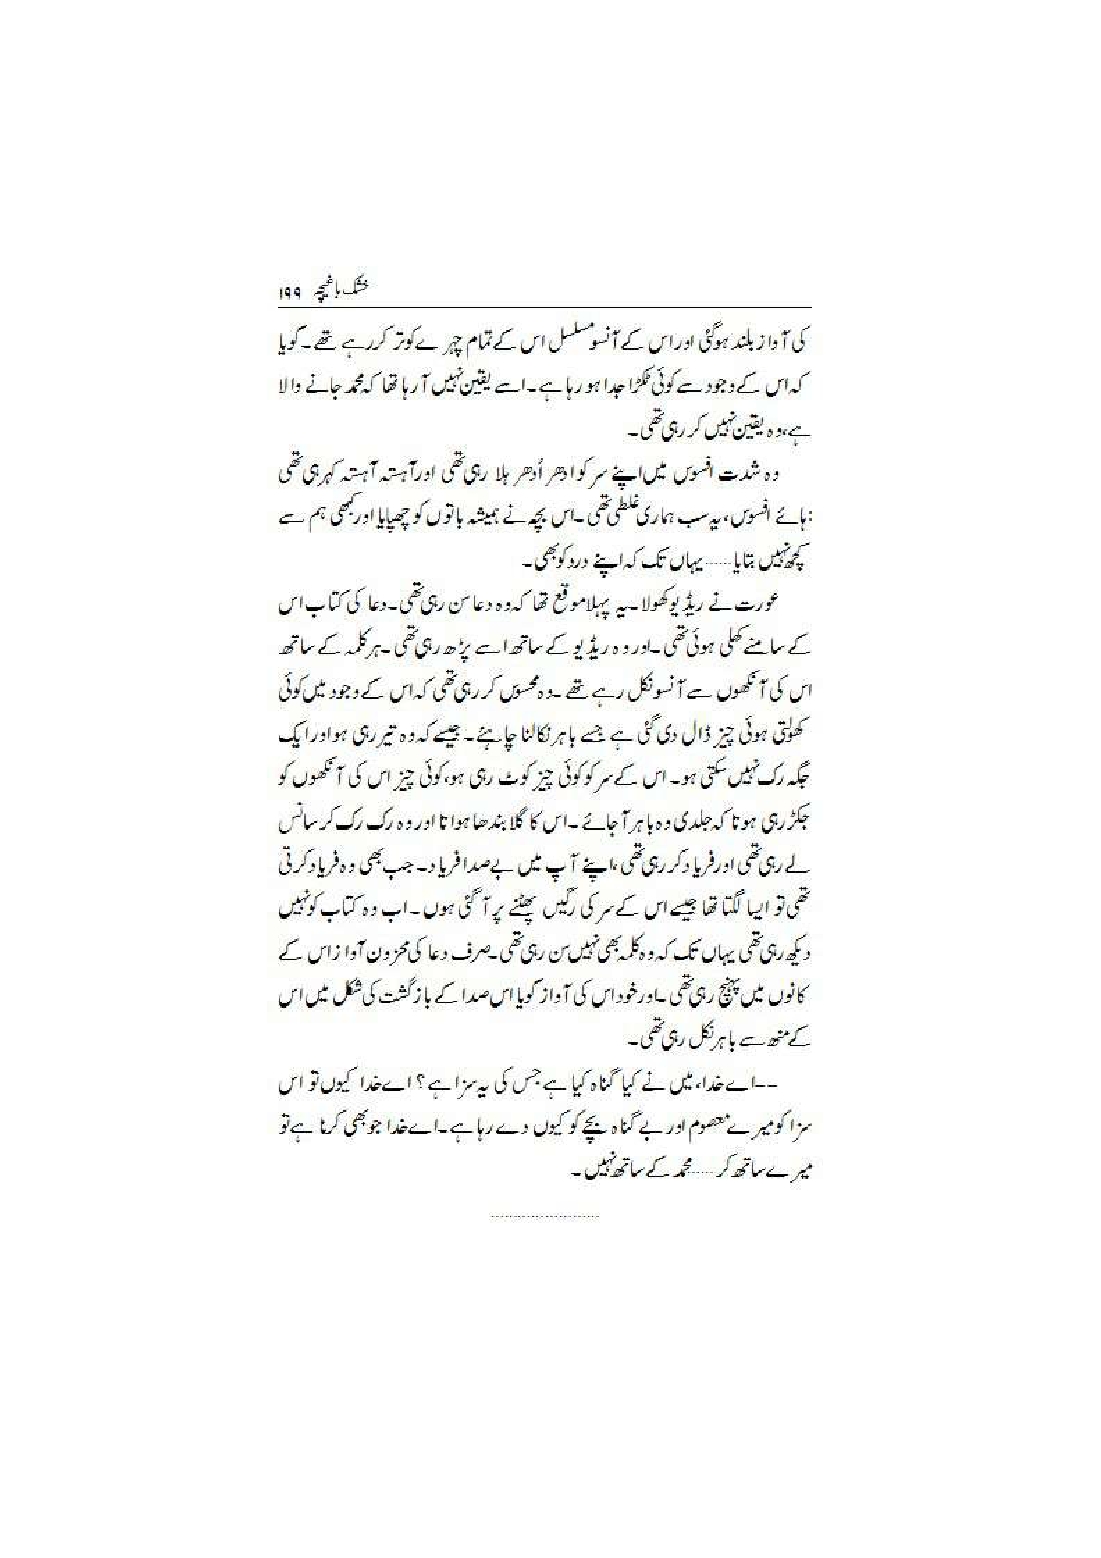 خشک باغیچہ ۱۹۹
کی آواز بلند ہوگئی اور اس کے آنسو مسلسل اس کے تمام چہرے کو تر کر رہے تھے۔ گویا
کہ اس کے وجود سے کوئی ٹکڑا جدا ہو رہا ہے۔ اسے یقین نہیں آرہا تھا کہ محمد جانے والا
ہے، وہ یقین نہیں کر رہی تھی۔
وہ شدت افسوس میں اپنے سر کو ادھر اُدھر ہلا رہی تھی اور آہستہ آہستہ کہہ رہی تھی
: ہائے افسوس، یہ سب ہماری غلطی تھی۔ اس بچہ نے ہمیشہ باتوں کو چھپایا اور کبھی ہم سے
کچھ نہیں بتایا ...... یہاں تک کہ اپنے درد کو بھی۔
عورت نے ریڈیو کھولا۔ یہ پہلا موقع تھا کہ وہ دعا سن رہی تھی۔ دعا کی کتاب اس
کے سامنے کھلی ہوئی تھی۔ اور وہ ریڈیو کے ساتھ اسے پڑھ رہی تھی۔ ہر کلمہ کے ساتھ
اس کی آنکھوں سے آنسو نکل رہے تھے۔ وہ محسوس کر رہی تھی کہ اس کے وجود میں کوئی
کھولتی ہوئی چیز ڈال دی گئی ہے جسے باہر نکالنا چاہئے۔ جیسے کہ وہ تیر رہی ہو اور ایک
جگہ رک نہیں سکتی ہو۔ اس کے سر کو کوئی چیز کوٹ رہی ہو، کوئی چیز اس کی آنکھوں کو
جکڑ رہی ہو تا کہ جلدی وہ باہر آجائے۔ اس کا گلا بندھا ہوا تا اور وہ رک رک کر سانس
لے رہی تھی اور فریاد کر رہی تھی، اپنے آپ میں بے صدا فریاد۔ جب بھی وہ فریاد کرتی
تھی تو ایسا لگتا تھا جیسے اس کے سر کی رگیں پھٹنے پر آگئی ہوں۔ اب وہ کتاب کو نہیں
دیکھ رہی تھی یہاں تک کہ وہ کلمہ بھی نہیں سن رہی تھی۔ صرف دعا کی محزون آواز اس کے
کانوں میں پہنچ رہی تھی۔ اور خود اس کی آواز گویا اس صدا کے بازگشت کی شکل میں اس
کے منھ سے باہر نکل رہی تھی۔
--اے خدا، میں نے کیا گناہ کیا ہے جس کی یہ سزا ہے؟ اے خدا کیوں تو اس
سزا کو میرے معصوم اور بے گناہ بچے کو کیوں دے رہا ہے۔ اے خدا جو بھی کرنا ہے تو
میرے ساتھ کر ...... محمد کے ساتھ نہیں۔
........................